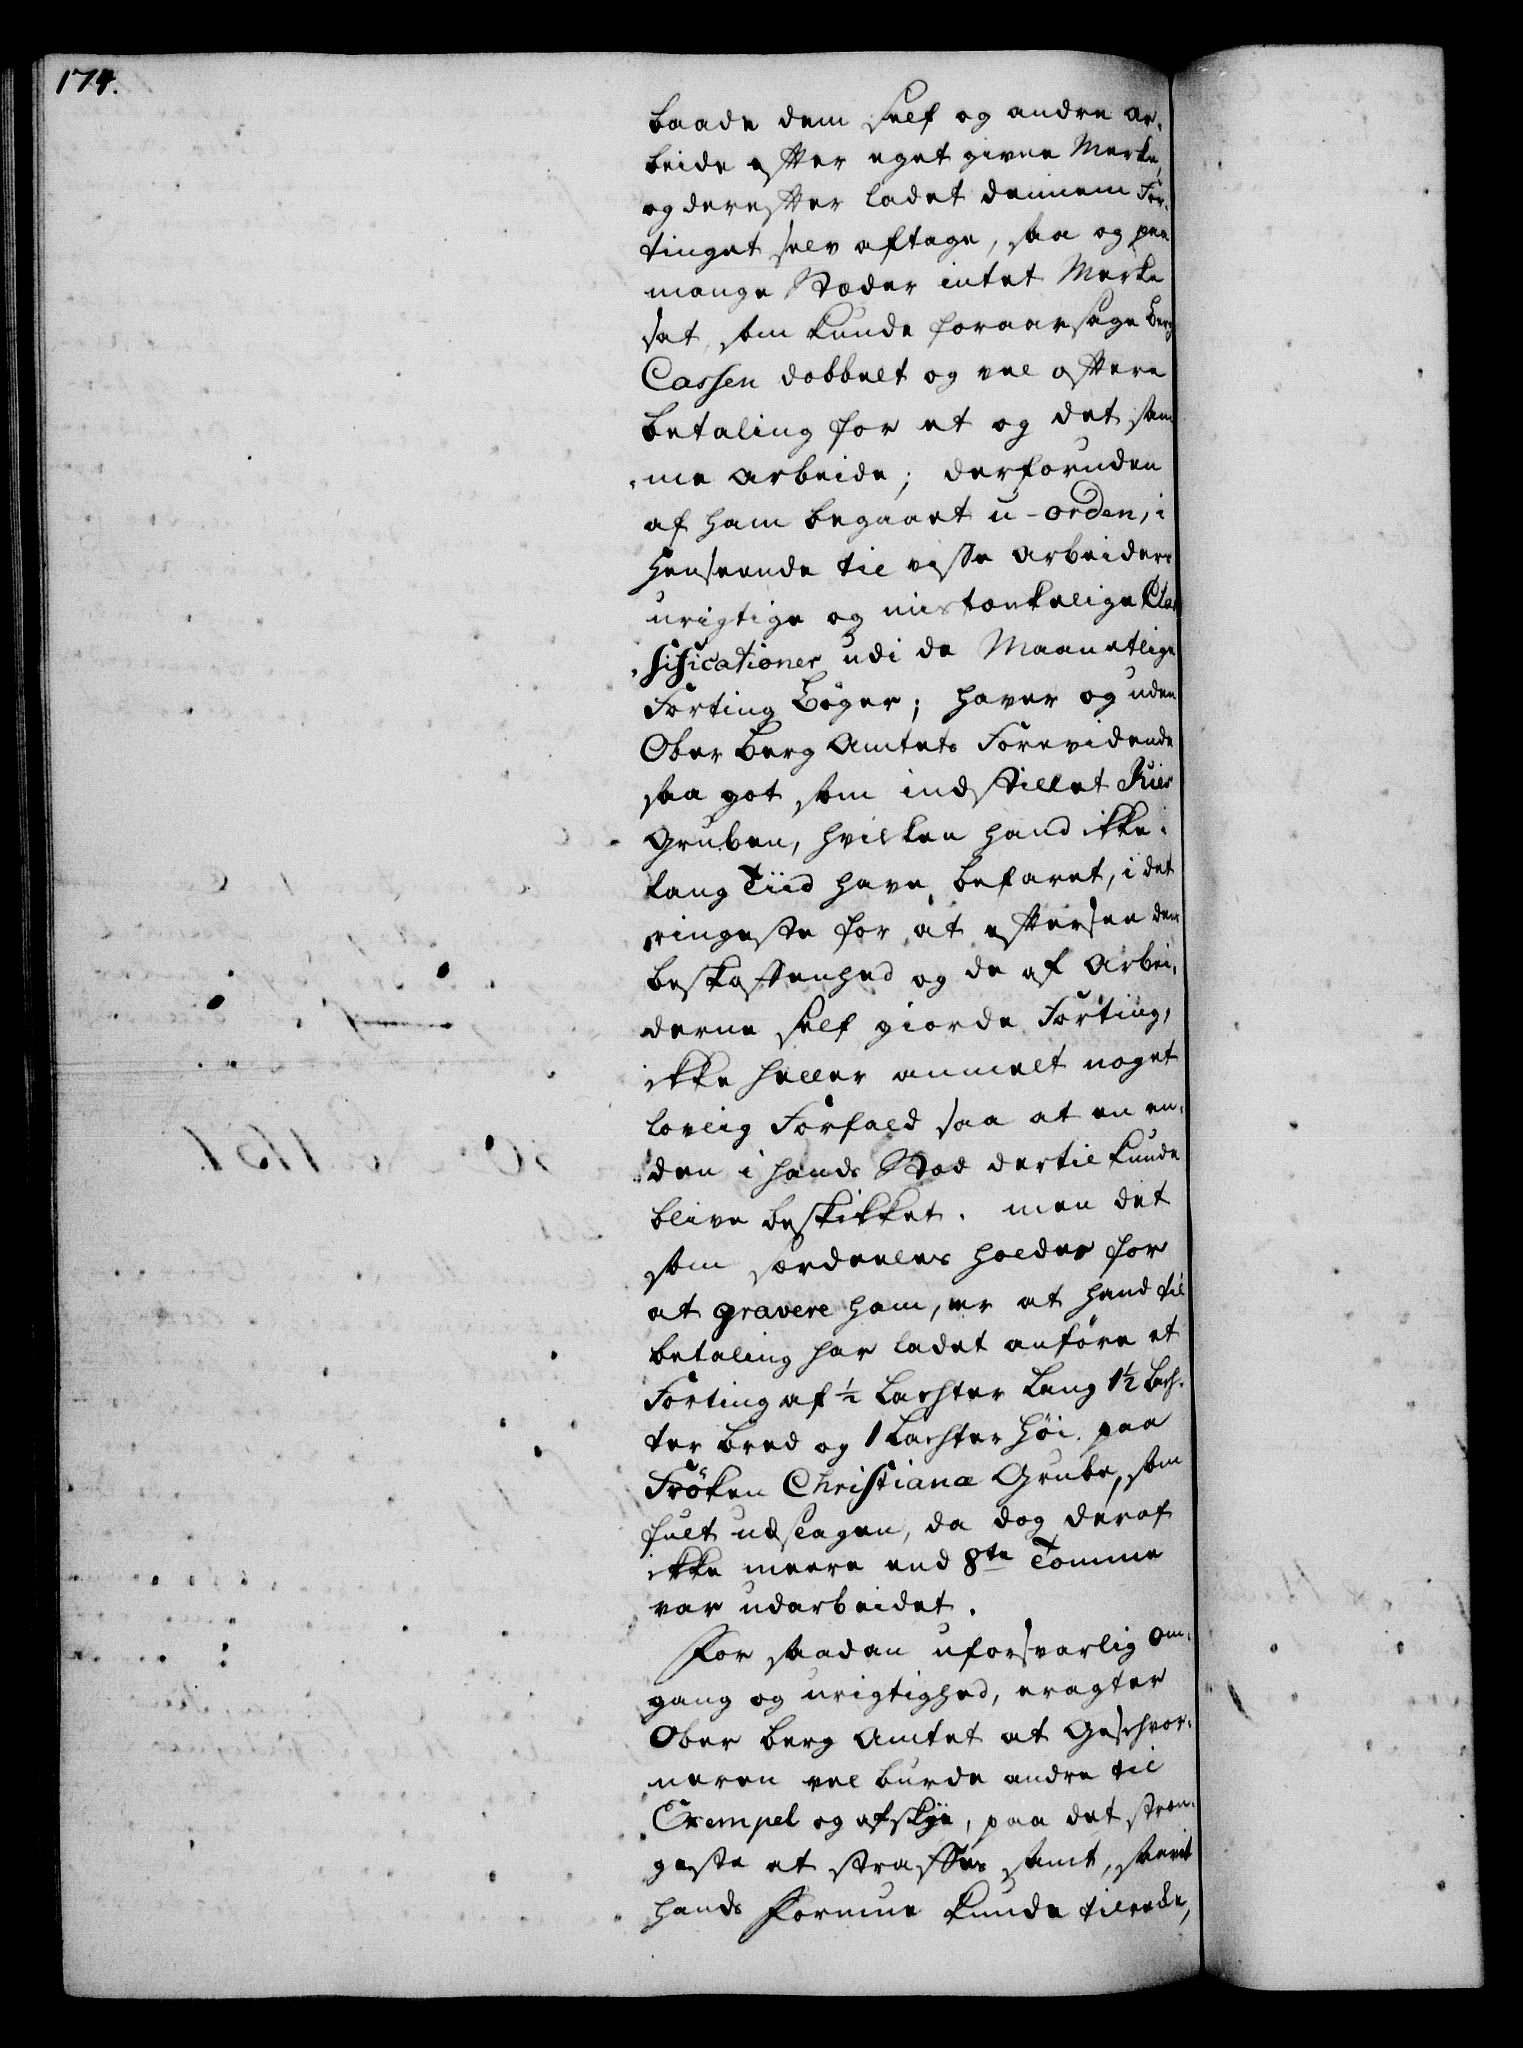 174.
baade dem self og andre ar-
beide efter eget givne Merke,
og derefter ladet dennem For-
tinget selv aftage, saa og paa
mange Stæder intet Merke
sat, som kunde foraarsage Berg
Cassen dobbelt og vel oftere
betaling for et og det sam
-me arbeide; derforuden
af ham begaaet u-orden, i
henseende til visse arbeideres
urigtige og mistænkelige Clas
-sificationer udi de Maanetlige
Forting Bøger; haver og uden
Ober Berg Amtets Forevidende
saa got som indstillet Kies
Gruben, hvilken hand ikke i
lang Tiid have befaret, i det
ringeste for at eftersee dens
beskaffenhed og de af Arbei-
derne self giorde Forting,
ikke heller anmelt noget
lovlig Forfald saa at en an-
den i hands Stæd dertil kunde
blive beskikket. men det
som særdeeles holdes for
at gravere ham, er at hand til
betaling har ladet anføre et
Forting af ½ Lachter lang 1½ Lach-
ter bred og 1 Lachter høi paa
Frøken Christianæ Grube, som
fult udslagen, da dog deraf
ikke meere end 8te Tomme
var udarbeidet.
For saadan uforsvarlig om-
gang og urigtighed, eragter
Ober Berg Amtet at Geschvor-
neren vel burde andre til
Exempel og afskye, paa det stræn-
geste at straffes samt, saavit
hands Formue kunde tilrecke,